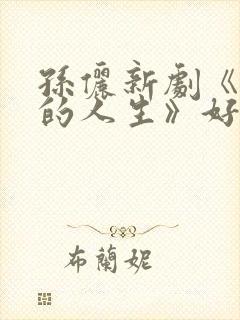 孫儷新劇《
的人生》好
布蘭妮